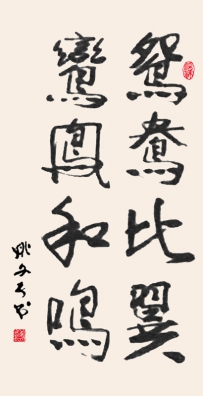 鴛鴦比翼
鸞鳳和鳴